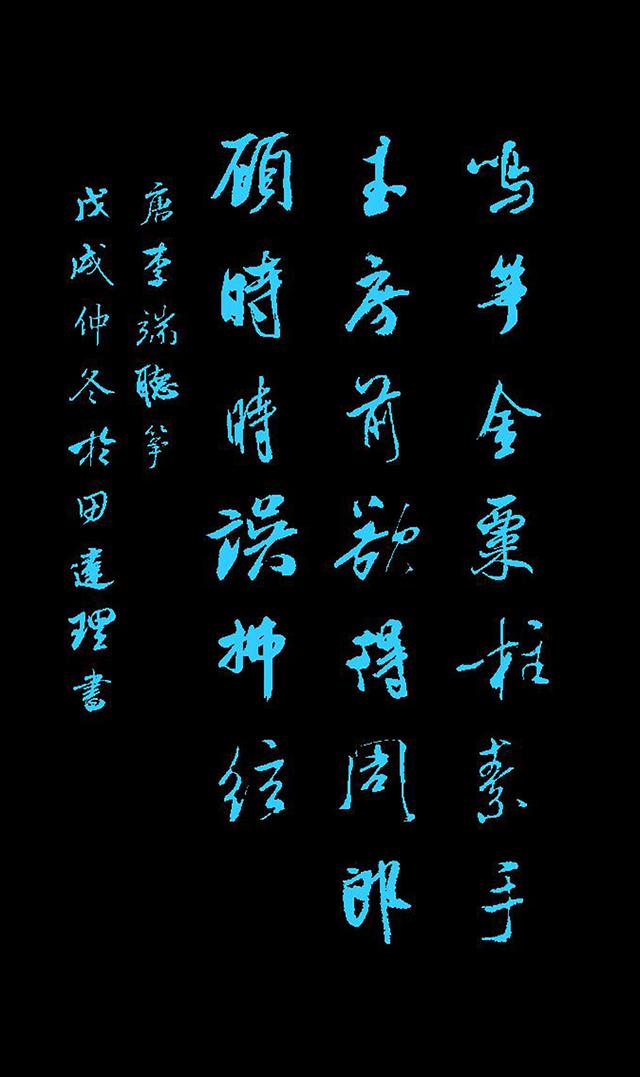 鳴箏金粟柱素手
玉房前欲得周郎
顧時時誤拂絃
唐李端聽箏
戊戌仲冬於田達理書